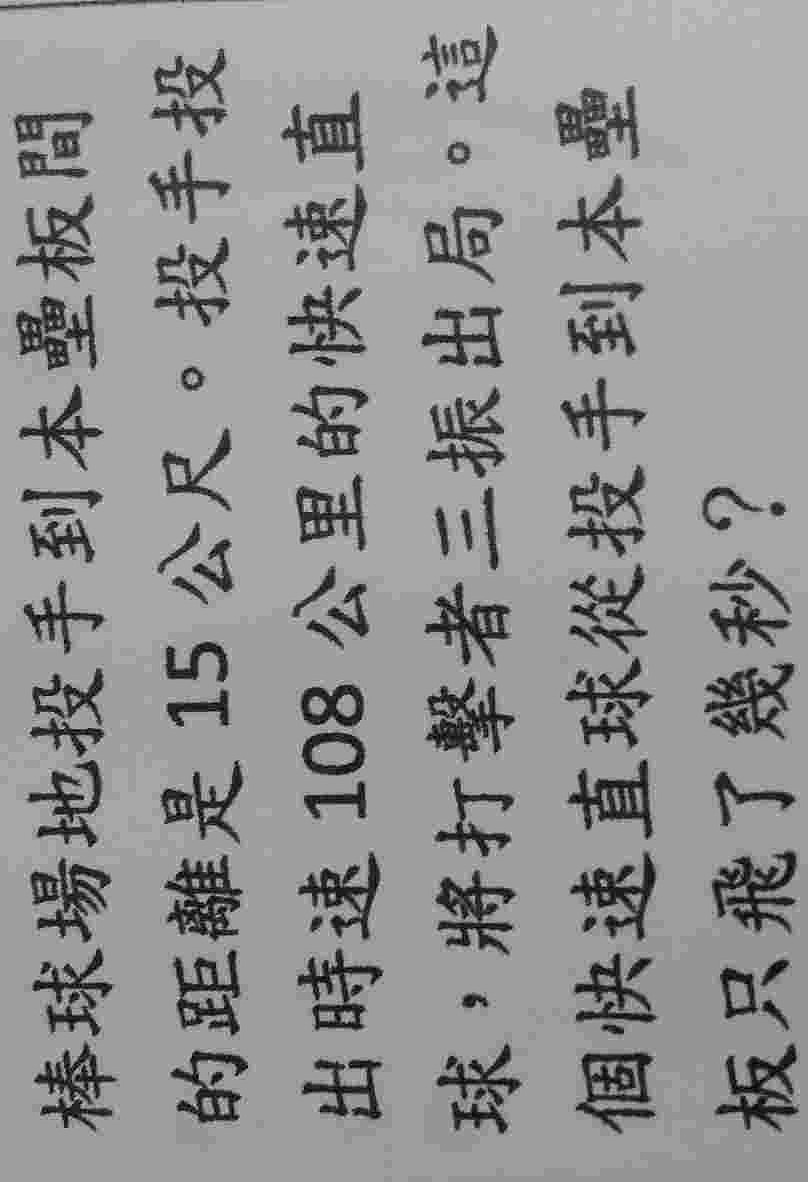 棒球場地投手到本壘板間
的距離是 15 公尺。投手投
出時速 108 公里的快速直
球，將打擊者三振出局。這
個快速直球從投手到本壘
板只飛了幾秒？